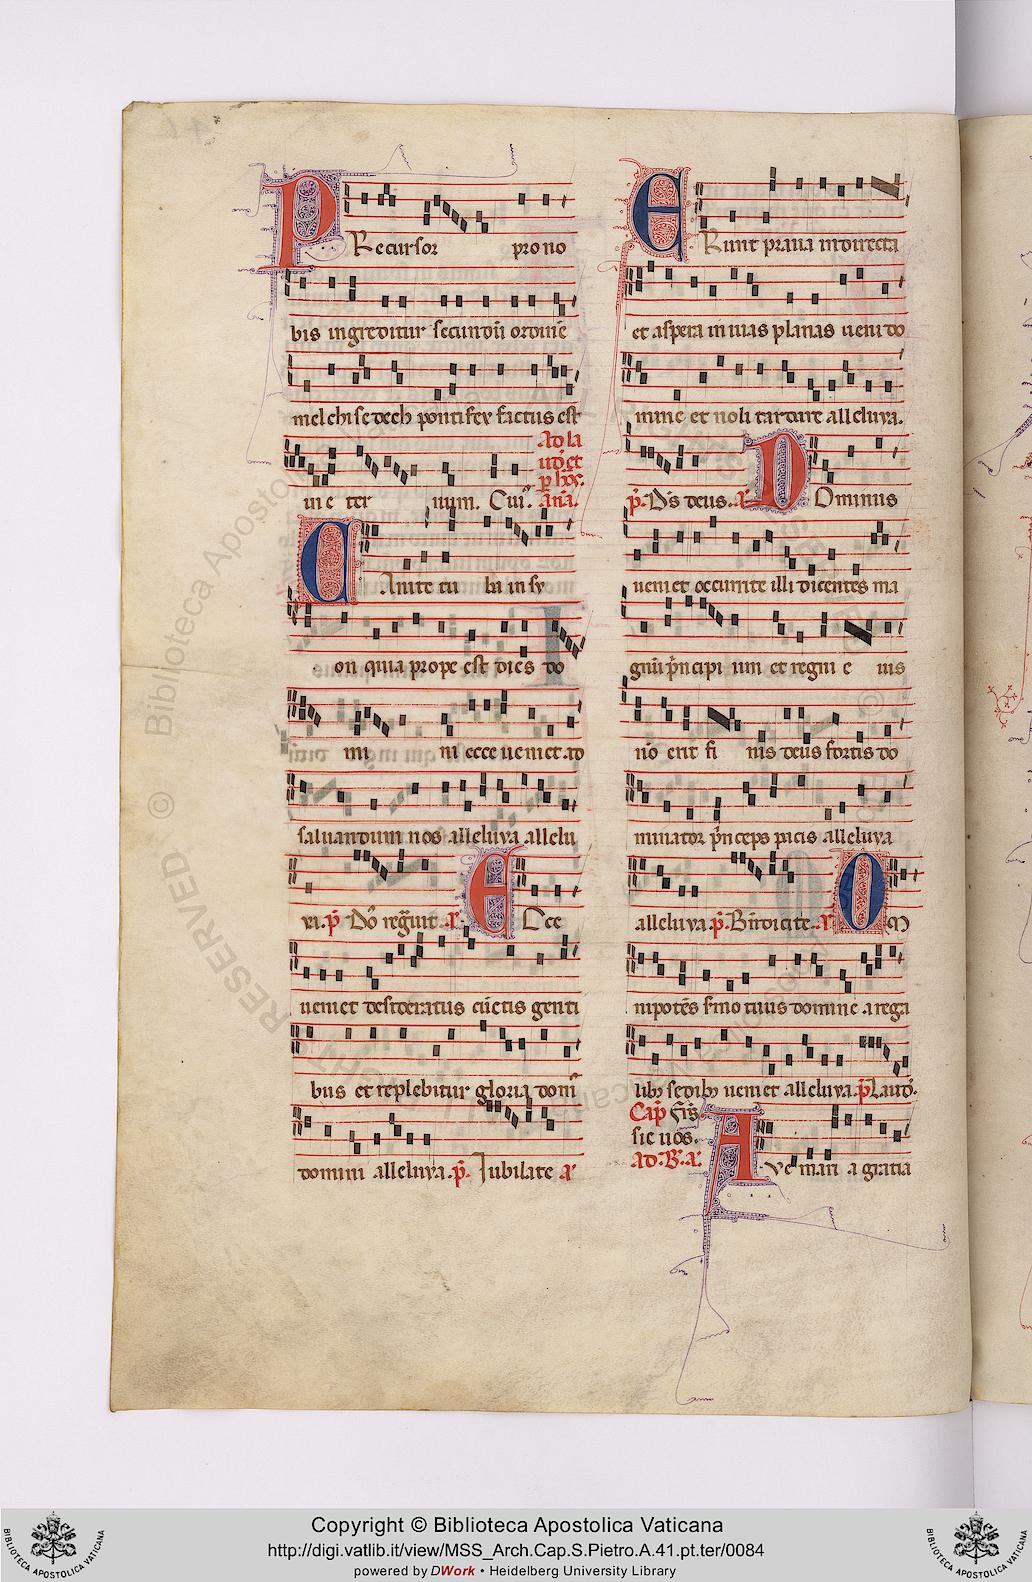 PRecursor pro no
bis ingreditur secundũ ordinẽ
melchisedech pontifex factus est
Ad la
ud' et
p hõr.
in e ter num. Cui9. añã.
CAnite tu ba in sy
on quia prope est dies do
mi ni ecce ueniet ad
saluandum nos alleluya allelu
ya. p̃. Dñs regñuit. a' ECce
ueniet desideratus cũctis genti
bus et replebitur gloria dom'
domini alleluya. p̃. Jubilate a'
ERunt praua in directa
et aspera in uias planas ueni do
mine et noli tardare alleluya.
p̃. Ds deus. a' DOminus
ueniet occurrite illi dicentes ma
gnũ pⁱncipi um et regni e ius
nõ erit fi nis deus fortis do
minator pⁱnceps pacis alleluya
alleluya. p̃. Bñdicite. a' OM
nipotẽs sermo tuus domine a rega
lib; sedib; ueniet alleluya. p̃. Laud'.
Cap̃
sic uos.
ad. B. a'. AVe mari a gratia
Copyright © Biblioteca Apostolica Vaticana
http://digi.vatlib.it/view/MSS_Arch.Cap.S.Pietro.A.41.pt.ter/0084
powered by DWork • Heidelberg University Library
BIBLIOTECA APOSTOLICA VATICANA
BIBLIOTECA APOSTOLICA VATICANA